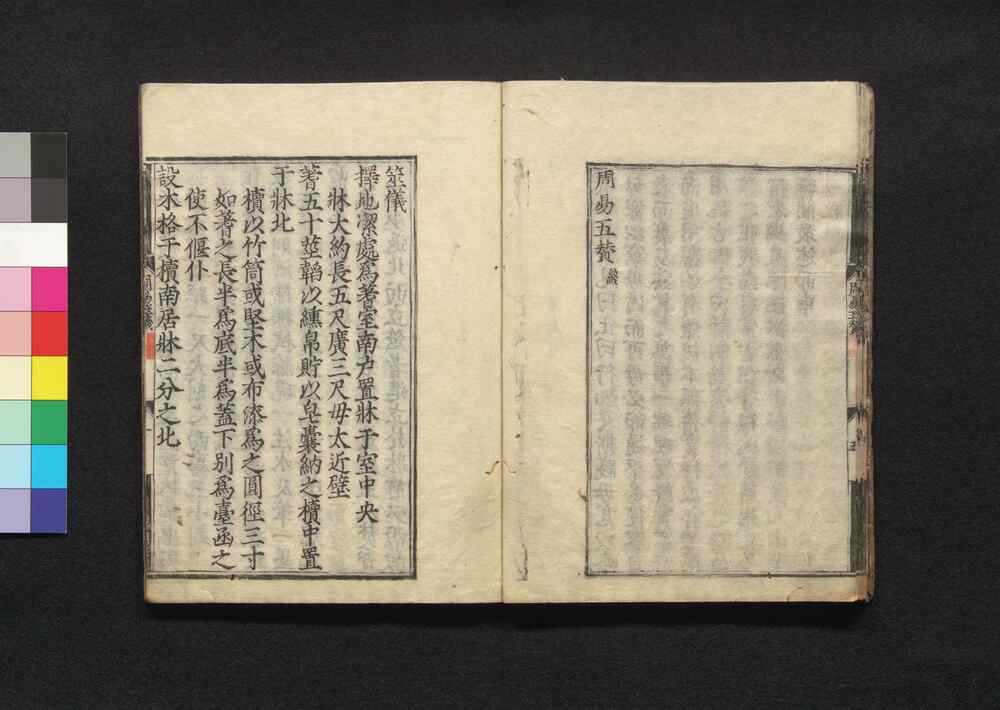 周易五贊終
筮儀
擇地潔處爲蓍室南戶置牀于室中央
牀大約長五尺廣三尺毋太近壁
蓍五十莖韜以纁帛貯以皂囊納之櫝中置
于牀北
櫝以竹筒或堅木或布漆爲之圓徑三寸
如蓍之長半爲底半爲蓋下别爲臺函之
使不偃仆
設木格于櫝南居牀二分之北